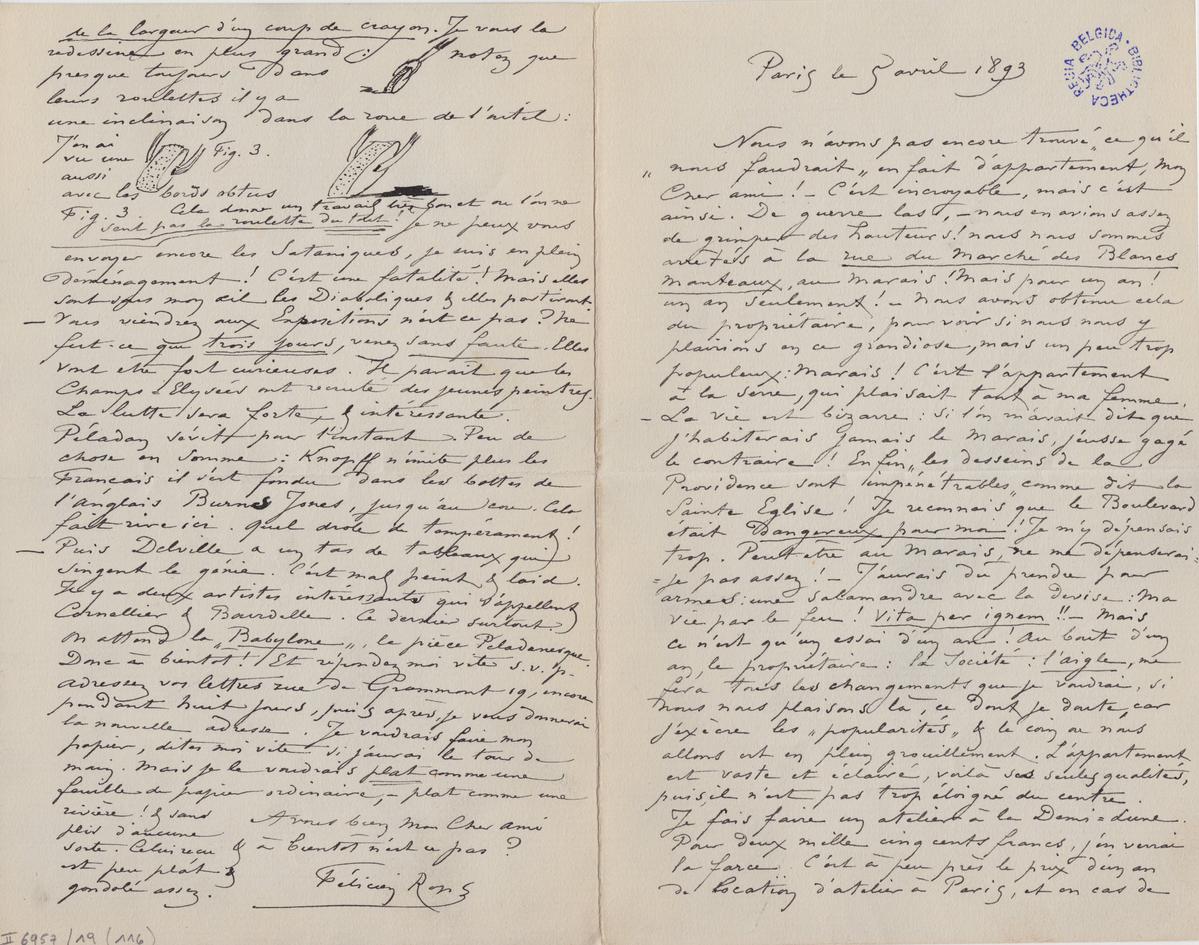 de la largeur d'un coup de crayon. Je vous la
redessine en plus grand : notez que
presque toujours dans
leurs roulettes il y a
une inclinaison dans la roue de l'outil :
J'en ai
vu une
aussi
Fig. 3.
avec les bords obtus
Fig. 3. Cela donne un travail très bonet ou l'on ne
sent pas la roulette du tout ! Je ne peux vous
envoyer encore les Sataniques, je suis en plein
Déménagement ! C'est une fatalité ! Mais elles
sont sous mon œil les Diaboliques & elles partiront
– Vous viendrez aux Expositions n'est ce pas ? Ne
fut-ce que trois jours, venez sans faute. Elles
vont etre fort curieuses. Il parait que les
Champs-Elysées ont recruté des jeunes peintres.
La lutte sera forte & interessante.
Péladan sévit pour l'instant. Peu de
chose en somme : Knopff n'imite plus les
Francais il s'est fondu dans les bottes de
l'anglais Burnes Jones, jusqu'au cou. Cela
fait rire ici. quel drole de tempérament !
– Puis Delville a un tas de tableaux qui
singent le génie. C'est mal peint & laid.
Il y a deux artistes intéressants qui s'appellent
Cornellier & Bourdelle. Ce dernier surtout.
On attend la „Babylone„, la pièce Péladanesque.
Donc à bientot ! Et répondez moi vite s.v.p.
adressez vos lettres rue de Grammont 19, encore
pendant huit jours, puis après, je vous donnerai
la nouvelle adresse. Je voudrais faire mon
papier, dites moi vite si j'aurai le tour de
main. Mais je le voudrais plat comme une
feuille de papier ordinaire, – plat comme une
rivière ! & sans
plis d'aucune
sorte. Celui ci
est peu plat &
gondolé assez.
A vous bien Mon Cher ami
& à bientot n'est ce pas ?
Félicien Rops
II 6957 / 19 (116)
Paris le 5 avril 1893
REGIA BELGICA · BIBLIOTHECA
Nous n'avons pas encore trouvé „ce qu'il
nous faudrait„ en fait d'appartement, Mon
Cher ami ! – C'est incroyable, mais c'est
ainsi. De guerre las, – nous en avions assez
de grimper des hauteurs ! nous nous sommes
arrêtés à la rue du Marché des Blancs
Manteaux, au Marais ! Mais pour un an !
un an seulement ! – Nous avons obtenu cela
du propriétaire, pour voir si nous nous y
plairions en ce grandiose, mais un peu trop
populeux : Marais ! C'est l'appartement
à la serre, qui plaisait tant à ma femme.
– La vie est bizarre : si l'on m'avait dit que
j'habiterais jamais le Marais, j'eusse gagé
le contraire ! Enfin „les desseins de la
Providence sont impénétrables„ comme dit la
Sainte Eglise ! Je reconnais que le Boulevard
était Dangereux pour moi !! Je m'y dépensais
trop. Peut etre au Marais, ne me dépenserai-
-je pas assez ! – J'aurais dû prendre pour
armes : une Salamandre avec la devise : Ma
vie par le feu ! Vita per ignem !! – Mais
ce n'est qu'un essai d'un an ! Au bout d'un
an, le propriétaire : la Société : l'aigle, me
fera tous les changements que je voudrai, si
nous nous plaisons là, ce dont je doute, car
j'éxècre les „popularités„ & le coin ou nous
allons est en plein grouillement. L'appartement
est vaste et éclairé, voilà ses seules qualités,
puis, il n'est pas trop éloigné du centre.
Je fais faire un atelier à la Demi=Lune.
Pour deux mille cinq cents francs, j'en verrai
la farce. C'est à peu près le prix d'un an
de location d'atelier à Paris, et en cas de